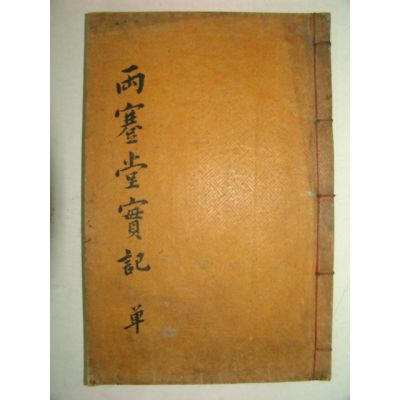 兩蹇堂實記 単